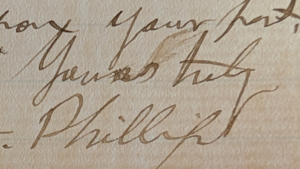 your part,
Yours truly
Phillips